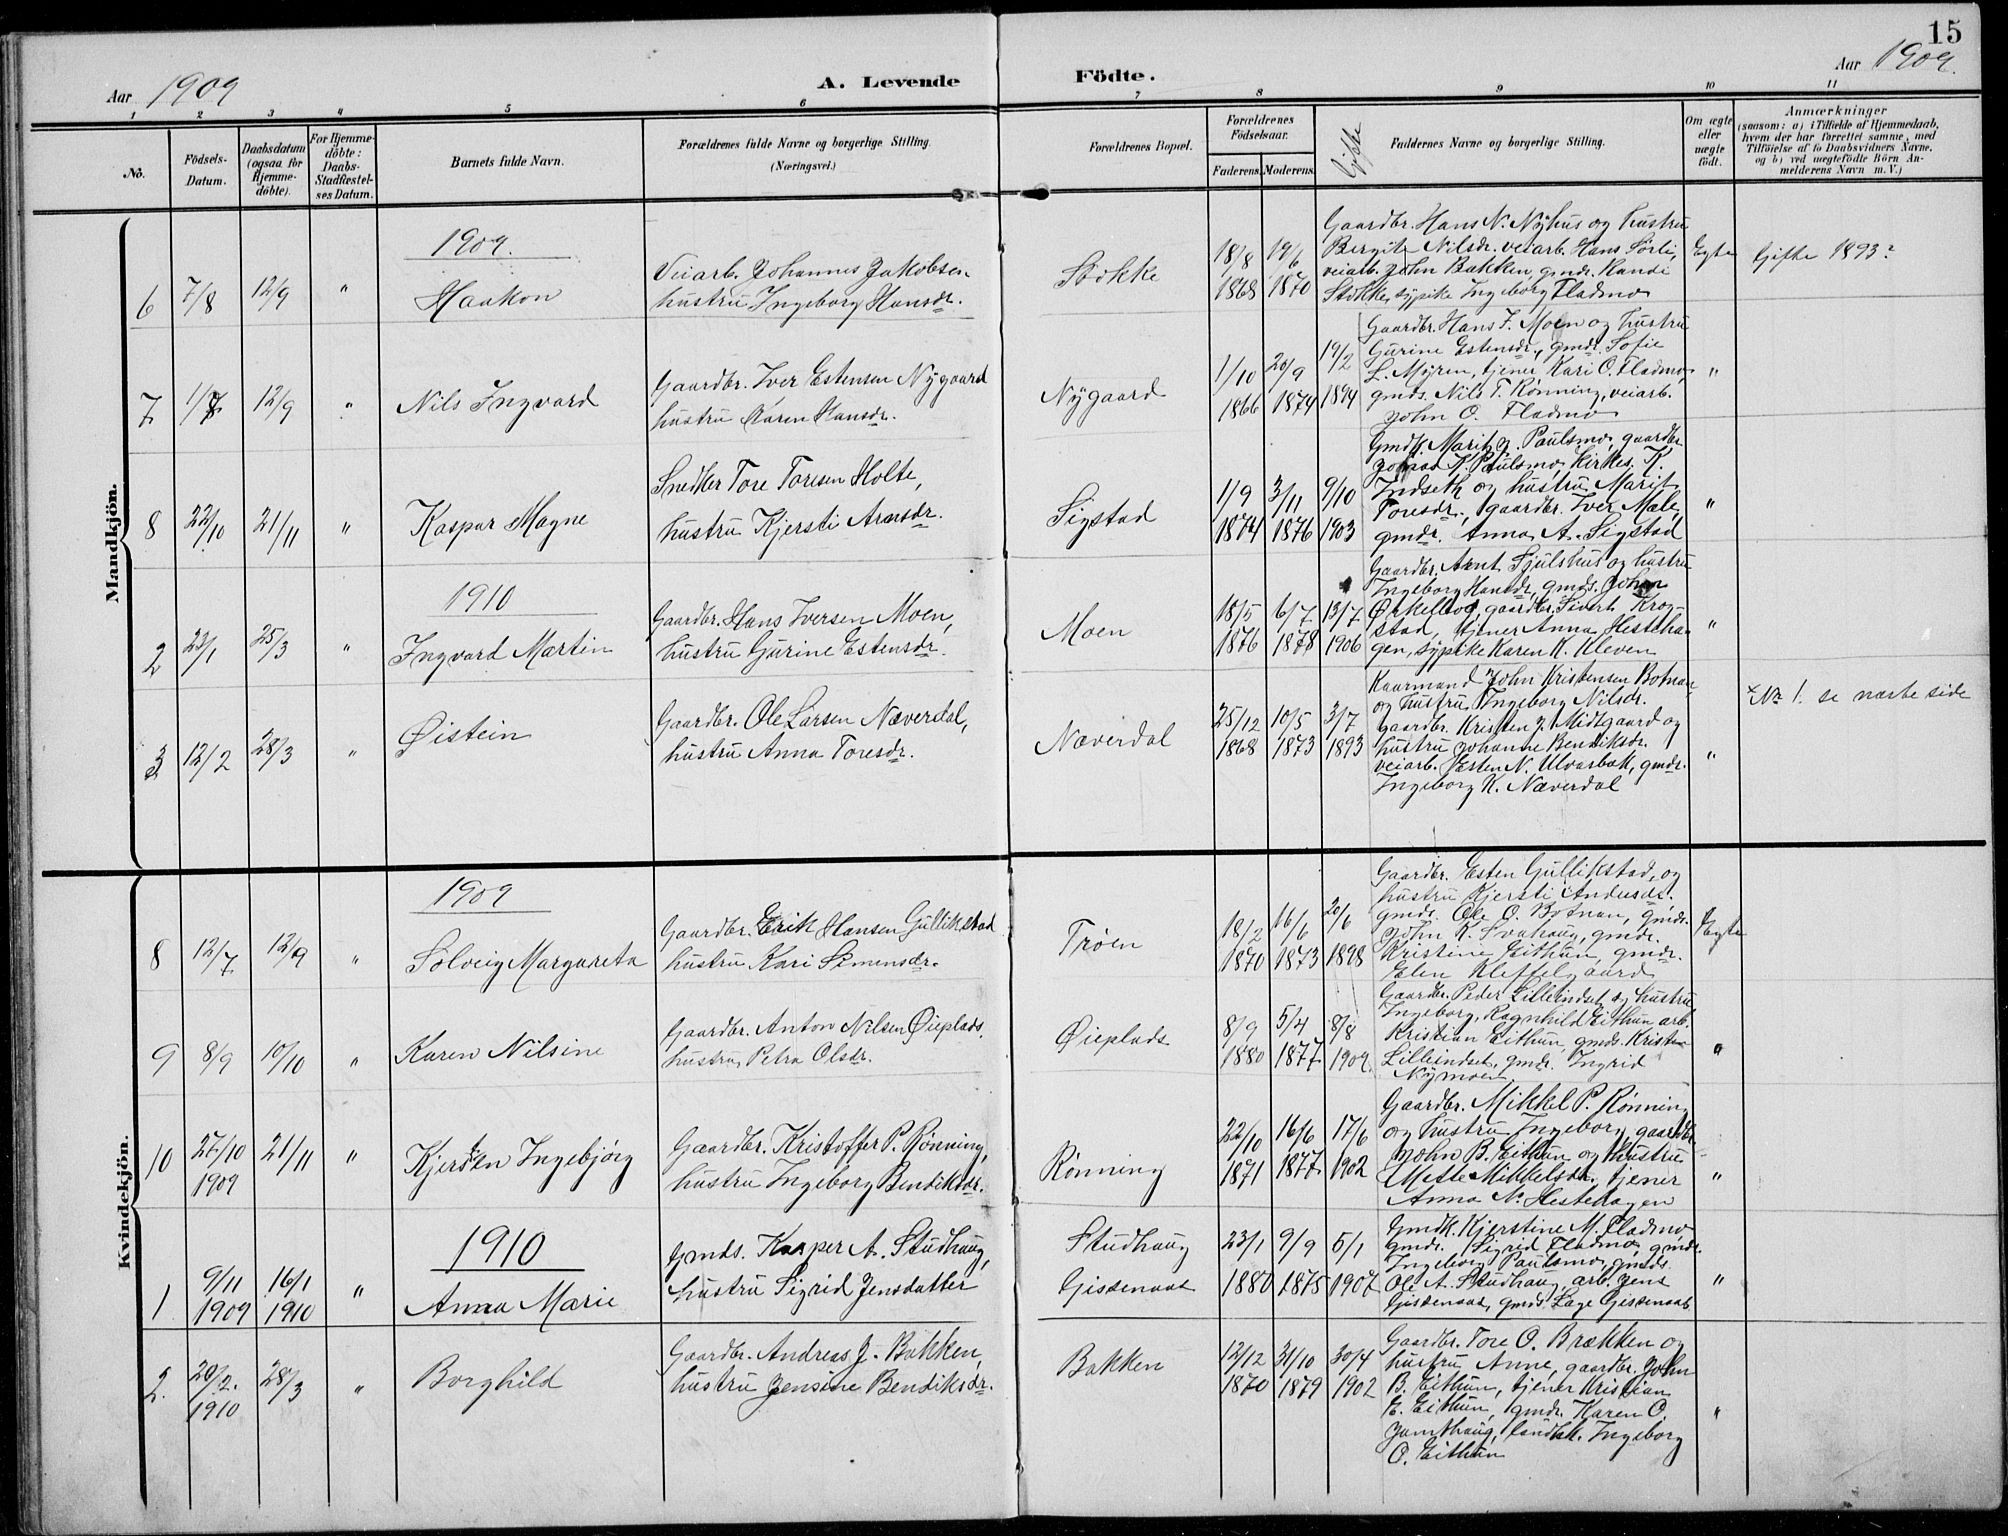 15
Aar 1909
A. Levende Födte.
Aar 1909.
1 2 3 4 5 6 7 8 9 10 11
No.
Födsels-
Datum.
Daabsdatum
(ogsaa for
Hjemme-
döbte).
For Hjemme-
döbte:
Daabs-
Stadfæstel-
ses Datum.
Barnets fulde Navn.
Forældrenes fulde Navne og borgerlige Stilling.
(Næringsvei.)
Forældrenes Bopæl.
Forældrenes
Födselsaar.
Faderens. Moderens.
Gifte
Faddernes Navne og borgerlige Stilling.
Om ægte
eller
uægte
födt.
Anmærkninger
(saasom: a) i Tilfælde af Hjemmedaab,
hvem der har forrettet samme, med
Tilföielse af to Daabsvidners Navne,
og b) ved uægtefödte Börn An-
melderens Navn m. V.)
Mandkjön.
1909.
6 7/8 12/9 " Haakon
Veiarb. Johannes Jakobsen
hustru Ingeborg Hansdr.
Stokke
18/8 1868
19/6 1870
Gaardbr. Hans N. Nyhus og hustru
Bergit Nilsdr. veiarb. Hans Sörli,
veiarb. John Bakken, gmdr. Randi
Stokke, sypike Ingeborg Fladmo
Egte
Gifte 1893?
7 1/7 12/9 " Nils Ingvard
Gaardbr. Iver Estensen Nygaard
hustru Karen Hansdr.
Nygaard
1/10 1866
20/9 1874
19/2 1894
Gaardbr. Hans I. Moen og hustru
Gurine Estensdr., gmdr. Sofie
L. Myren, tjener Kari O. Fladmo,
gmds. Nils T. Rönning, veiarb.
John O. Fladmo
"
8 22/10 21/11 " Kaspar Magne
Snedker Tore Toresen Holte,
hustru Kjersti Arnsdr.
Sigstad
1/9 1874
3/11 1876
9/10 1903
Gmdk. Marit J. Paulsmo, gaardbr.
K. Paulsmo, Kirkes. K.
Indseth og hustru Marit
Toresdr., gaardbr. Iver Male,
gmdr. Anna A. Sigstad
"
1910
2 23/1 25/3 " Ingvard Martin
Gaardbr. Hans Iversen Moen,
hustru Gurine Estensdr.
Moen
18/5 1876
6/7 1878
13/7 1906
Gaardbr. Arnt Fjulshus og hustru
Ingeborg Hansdr, gmds. Johan
Örkelbog, gaardbr. Sivert Krog-
stad, tjener Anna Hesteha-
gen, sypike Karen K. Kleven
"
3 12/2 28/3 " Øistein
Gaardbr. Ole Larsen Næverdal,
hustru Anna Toresdr.
Næverdal
25/12 1868
10/5 1873
3/7 1893
Kaarmand John Kristensen Botnan
og hustru Ingeborg Nilsdr.
gaardbr. Kristen J. Midtgaard og
hustru Johanne Bendiksdr.
veiarb. Esten N. Ulvasbak, gmdr.
Ingeborg K. Næverdal
"
No 1. se næste side
Kvindekjön.
1909
8 12/7 12/9 " Solveig Margareta
Gaardbr. Erik Hansen Gullikstad
hustru Kari Simensdr.
Trøen
18/2 1870
16/6 1873
20/6 1898
Gaardbr. Esten Gullikstad, og
hustru Kjersti Andersdr.
gmds. Ole O. Botnan, gmds.
John K. Svahaug, gmdr.
Kristine Eithun, gmdr.
Elen Kleffelgaard
Egte
9 8/9 10/10 " Karen Nilsine
Gaardbr. Anton Nilsen Øieplads.
hustru Petra Olsdr.
Øieplads
8/9 1880
5/4 1877
8/8 1909.
Gaardbr. Peder Lilleindset og hustru
Ingeborg, Ragnhild Eithun arb.
Kristian Eithun, gmds. Kristen
Lilleindset, gmdr. Ingrid
Nymoen
"
10 27/10 1909 21/11 " Kjersten Ingebjörg
Gaardbr. Kristoffer P. Rönning,
hustru Ingeborg Bendiksdr.
Rönning
22/10 1871
16/6 1877
17/6 1902
Gaardbr. Mikkel P. Rönning
og hustru Ingeborg, gaardbr.
John B. Eithun og hustru
Mette Mikkelsdr., tjener
Anna N. Hestehagen
"
1910
1 9/11 1909 16/1 1910 " Anna Marie
Gmds. Kasper A. Studhaug,
hustru Sigrid Jensdatter
Studhaug
Gisdenaas
23/1 1880
9/9 1875
5/1 1907
Gmdk. Kjerstine M. Fladmo
gmdr. Sigrid Fladmo, gmdr.
Ingeborg Paulsmo, gmds.
Ole A. Studhaug, arb. Jens
Gisdenaas, gmds. Lage Gisdenaas
"
2. 20/2. 1910 28/3 " Borghild
Gaardbr. Andreas J. Bakken,
hustru Jensine Bendiksdr.
Bakken
12/12 1870
31/10 1879
30/4 1902
Gaardbr. Tore O. Brækken og
hustru Anne, gaardbr. John
B. Eithun, tjener Kristian
E. Eithun, gmdr. Karen O.
Jamthaug, landhk. Ingeborg
O. Eithun
"